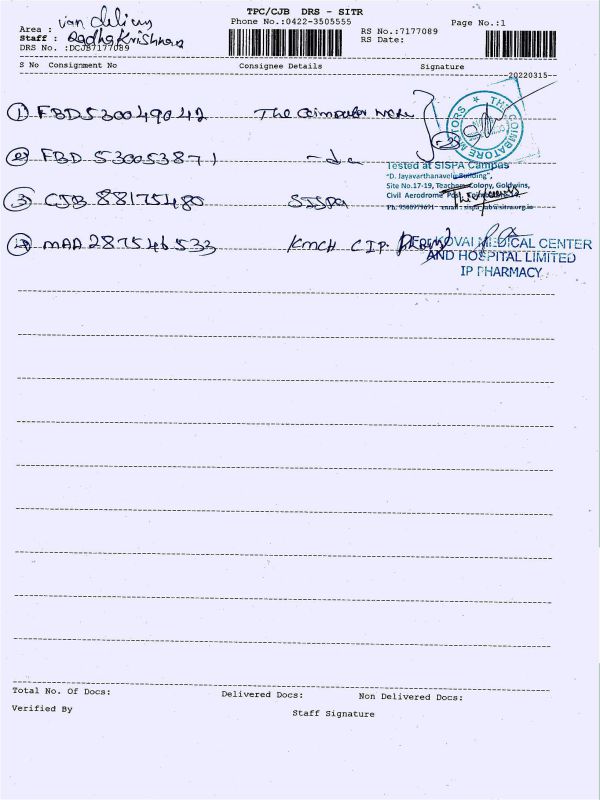 TPC/CJB DRS - SITR
Area : van delivery
Phone No.:0422-3505555
Page No.:1
Staff : Radha Krishnan
RS No.:7177089
DRS No. :DCJB7177089
RS Date:
S No Consignment No Consignee Details Signature
20220315
① FBD530049042 The Coimbatore
THE COIMBATORE MOTORS
② FBD 530053871 -do
Tested at SISPA Campus
"D. Jayavarthanavelu Building",
Site No.17-19, Teachers Colony, Goldwins,
Civil Aerodrome Post,
③ CJB 88175480 SISPA
④ MAA 287546533 KMCH C IP
KOVAI MEDICAL CENTER
AND HOSPITAL LIMITED
IP PHARMACY
Total No. Of Docs: Delivered Docs: Non Delivered Docs:
Verified By Staff Signature